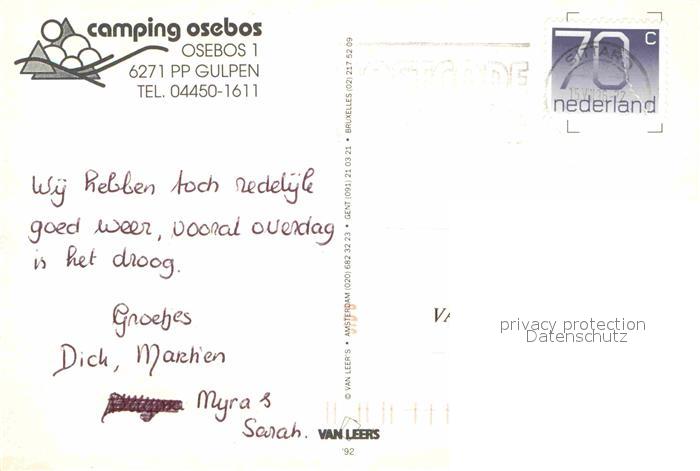 camping osebos
OSEBOS 1
6271 PP GULPEN
TEL. 04450-1611
70 c
nederland
SITTARD
Wij hebben toch redelijk
goed weer, vooral overdag
is het droog.
Groetjes
Dick, Marthien
Myra &
Sarah.
© VAN LEER'S • AMSTERDAM (020) 682 32 23 • GENT (091) 21 03 21 • BRUXELLES (02) 217 52 09
VAN LEER'S
'92
VA
privacy protection
Datenschutz